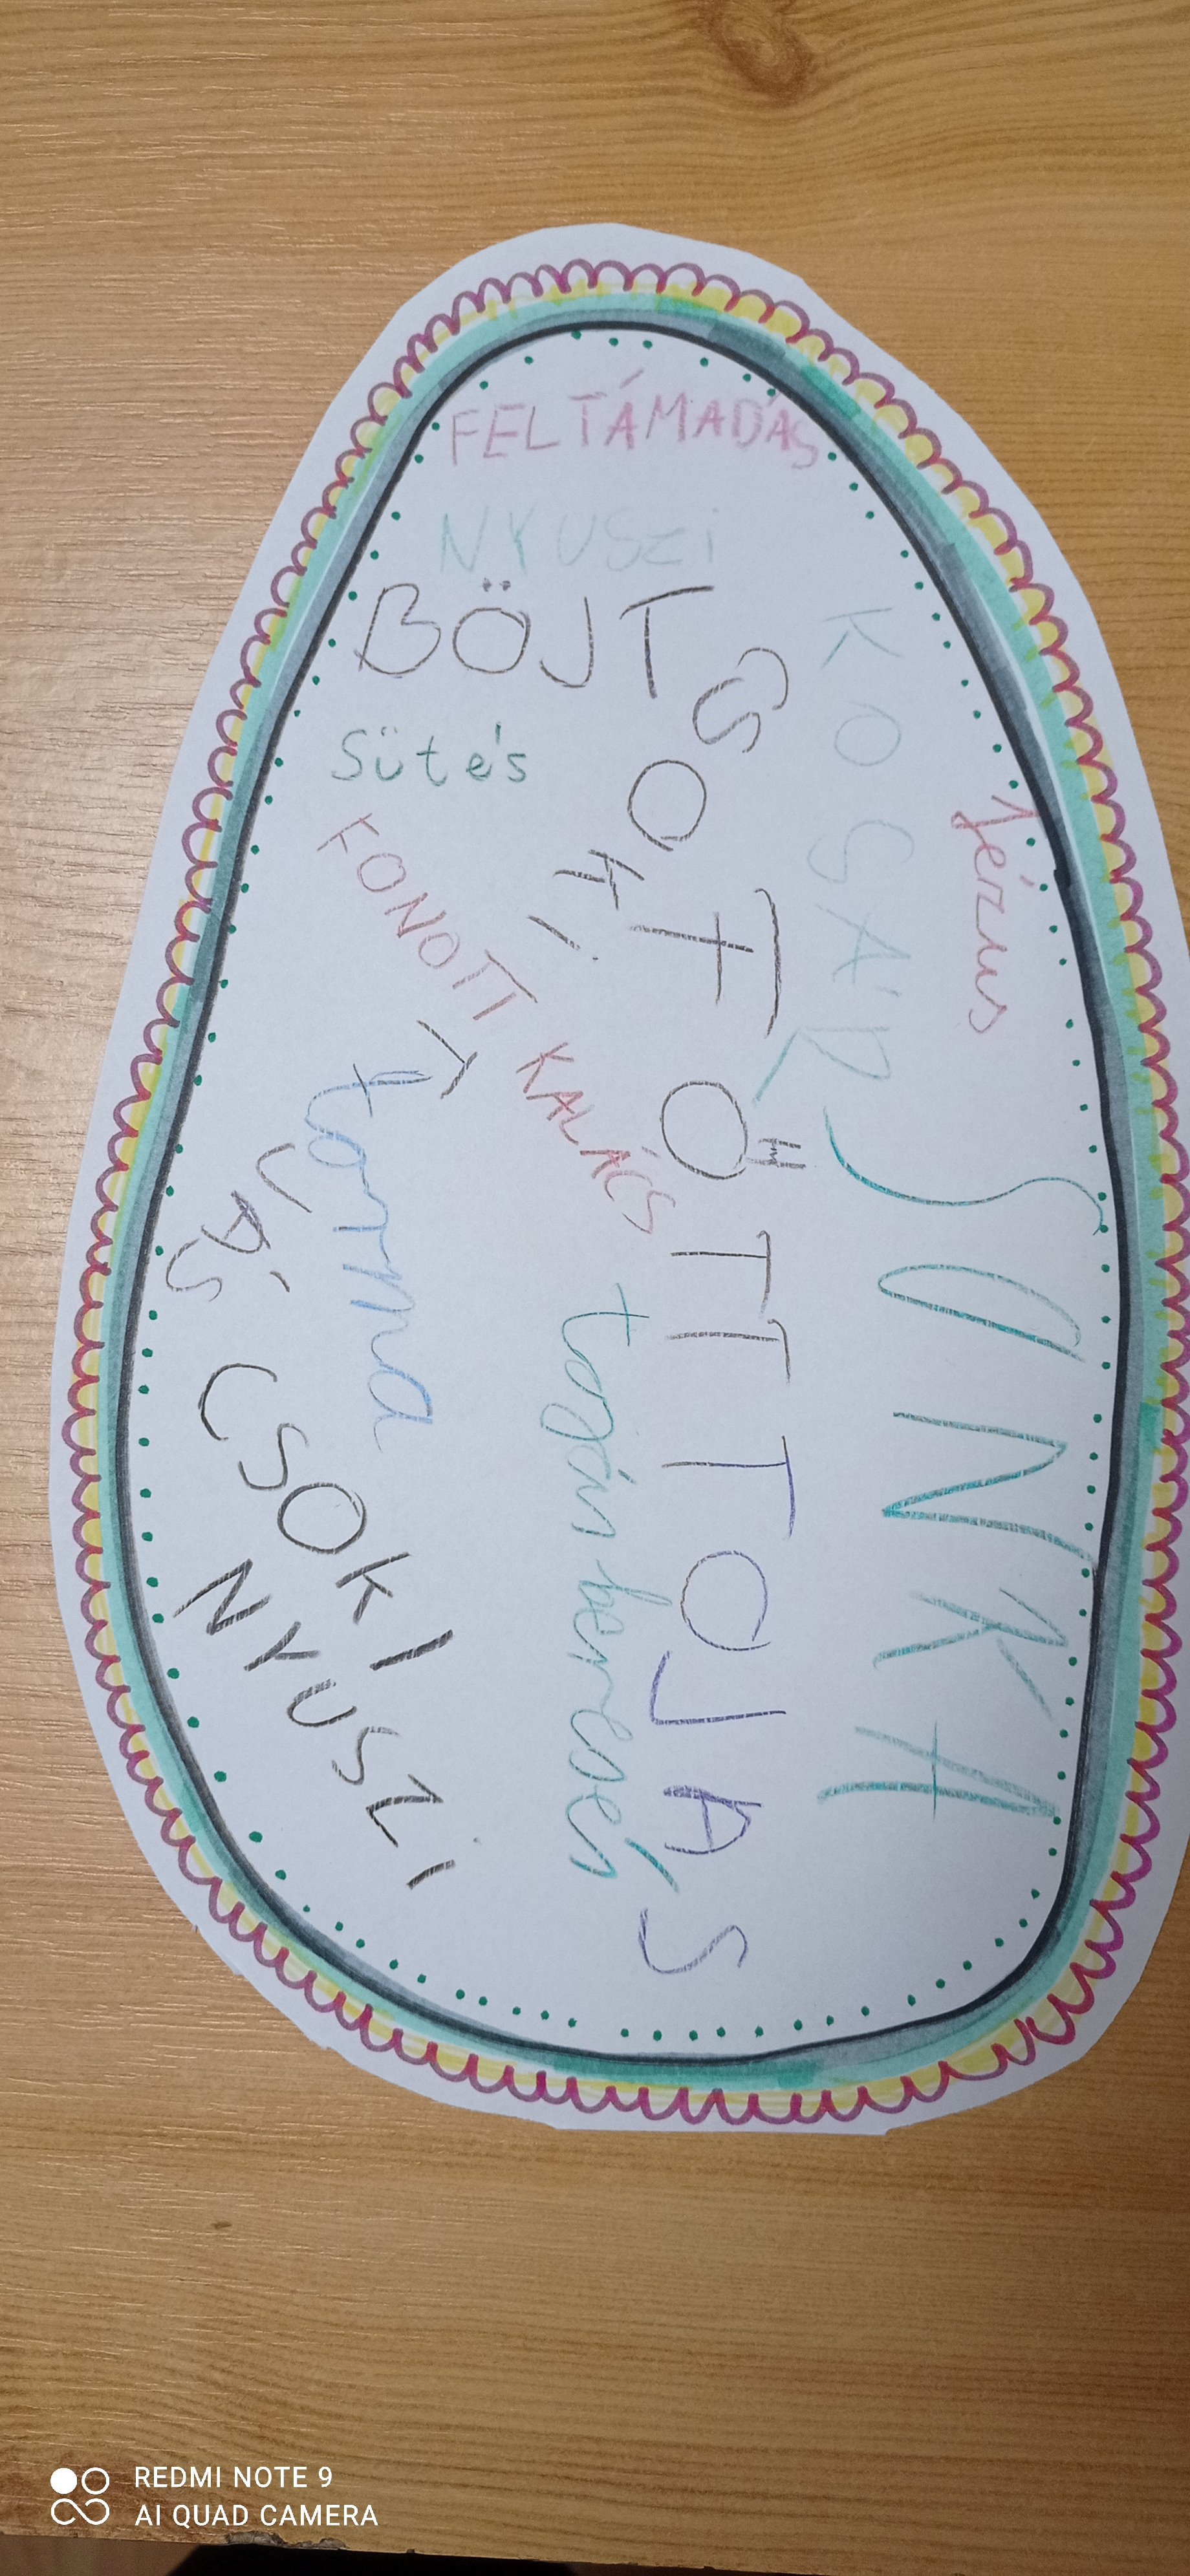 FELTÁMADÁS
NYUSZI
BÖJT
Sütés
KOSÁR
Jézus
CSOKI TOJÁS
FONOTT KALÁCS
FŐTT TOJÁS
SONKA
torma
CSOKI
NYUSZI
REDMI NOTE 9
AI QUAD CAMERA